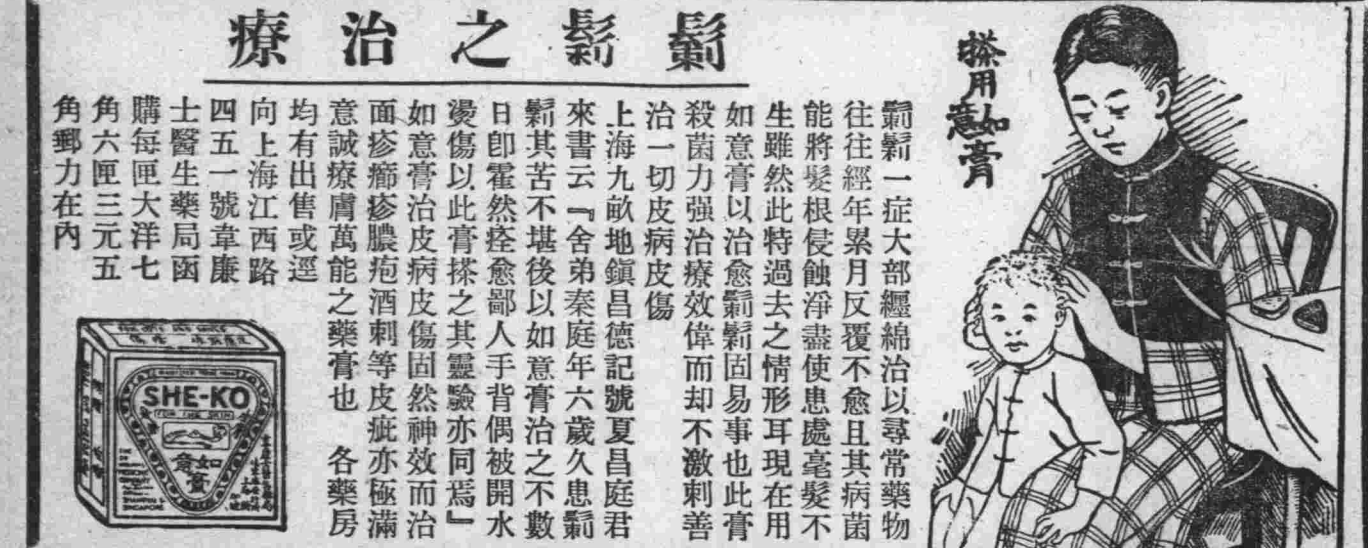 鬎鬁之治療
搽用如意膏
鬎鬁一症大部纏綿治以尋常藥物
往往經年累月反覆不愈且其病菌
能將髮根侵蝕淨盡使患處毫髮不
生雖然此特過去之情形耳現在用
如意膏以治愈鬎鬁固易事也此膏
殺菌力强治療效偉而却不激刺善
治一切皮病皮傷
上海九畝地鎭昌德記號夏昌庭君
來書云『舍弟秦庭年六歲久患鬎
鬁其苦不堪後以如意膏治之不數
日卽霍然痊愈鄙人手背偶被開水
燙傷以此膏搽之其靈驗亦同焉』
如意膏治皮病皮傷固然神效而治
面疹癤疹膿疱酒刺等皮疵亦極滿
意誠療膚萬能之藥膏也 各藥房
均有出售或逕
向上海江西路
四五一號韋廉
士醫生藥局函
購每匣大洋七
角六匣三元五
角郵力在內
SHE-KO
FOR THE SKIN
如意膏
SINGAPORE